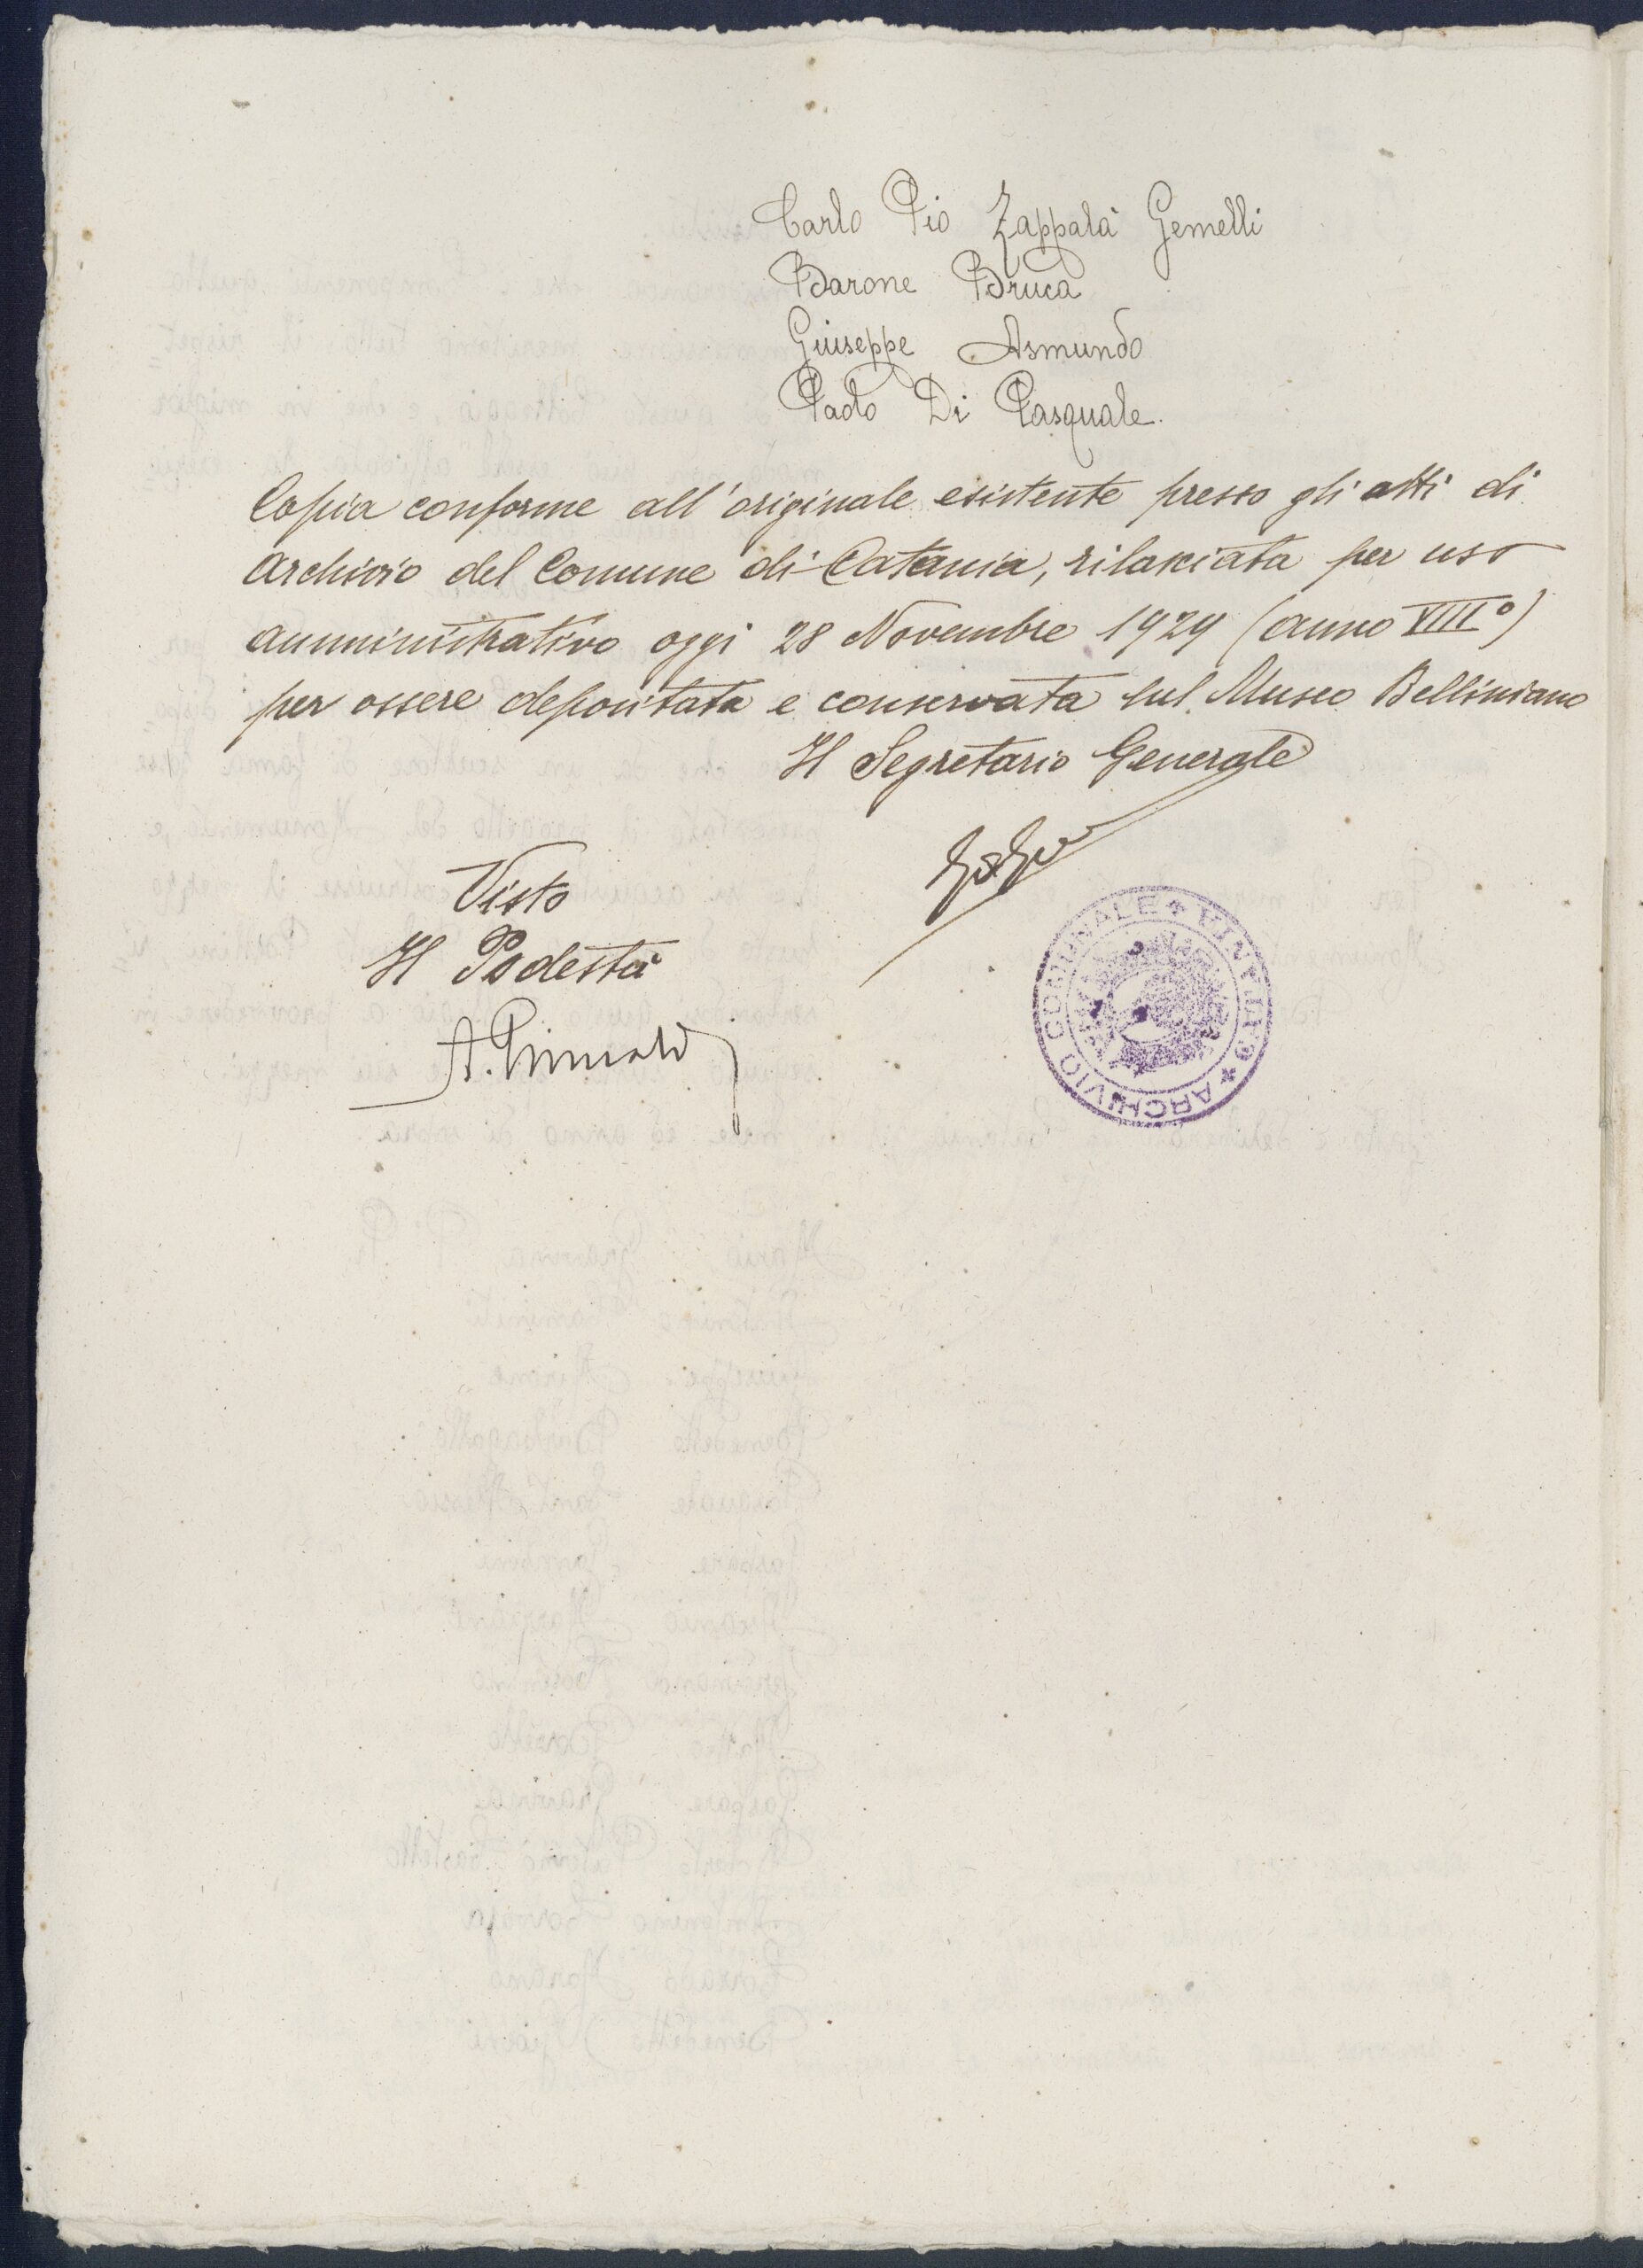 Carlo Pio Zappalà Gemelli
Barone Bruca
Giuseppe Asmundo
Paolo Di Pasquale.
Copia conforme all'originale esistente presso gli atti di
Archivio del Comune di Catania, rilasciata per uso
amministrativo oggi 28 Novembre 1929 (anno VIII°)
per essere depositata e conservata sul Museo Belliniano
Il Segretario Generale
Visto
Il Podestà
A.
ARCHIVIO COMUNALE ✦ CATANIA ✦